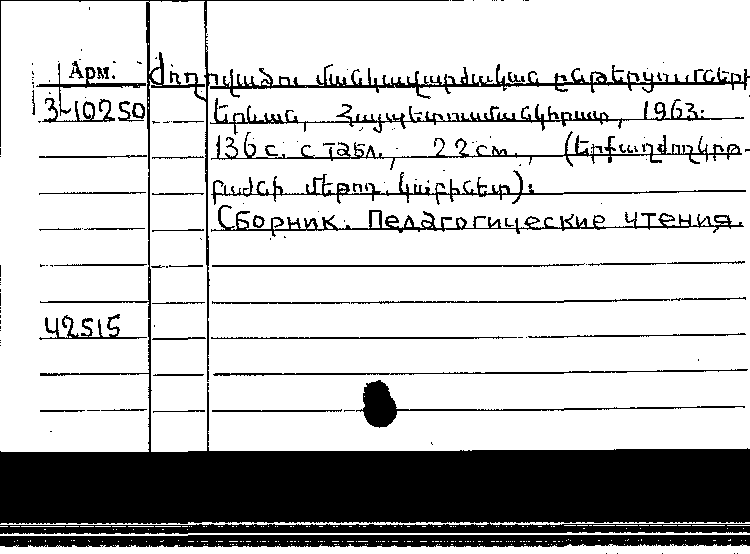 Арм. Ժողովածու մանկավարժական ընթերցումների
3-10250 Երևան, Հայպետուսմանկհրատ, 1963:
136 с. с табл., 22 см., (Երքաղժողկրթ-
բաժնի մեթոդ. կաբինետ):
Сборник. Педагогические чтения.
42515